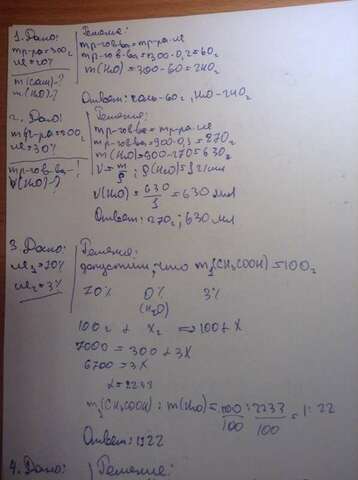 1. Дано: | Решение:
mр-ра=300г | mр-ов-ва=mр-ра·ω
ω=20% | mр-ов-ва=300·0,2=60г
m(соли)-? | m(H2O)=300-60=240г
m(H2O)-?
Ответ: соль-60г, H2O-240г
2. Дано: | Решение:
mр-ра=900г | mр-ов-ва=mр-ра·ω
ω=30% | mр-ов-ва=900·0,3=270г
mр-ов-ва-? | m(H2O)=900-270=630г
V(H2O)-? | V=m/ρ; ρ(H2O)=1г/мл
V(H2O)=630/1=630мл
Ответ: 270г; 630мл
3. Дано: | Решение:
ω1=70% | допустим, что m1(CH3COOH)=100г
ω2=3%
70% 0% 3%
(H2O)
100г + x2 => 100+x
7000=300+3x
6700=3x
x=2233
m1(CH3COOH):m(H2O)=100/100:2233/100=1:22
Ответ: 1:22
4. Дано: | Решение: